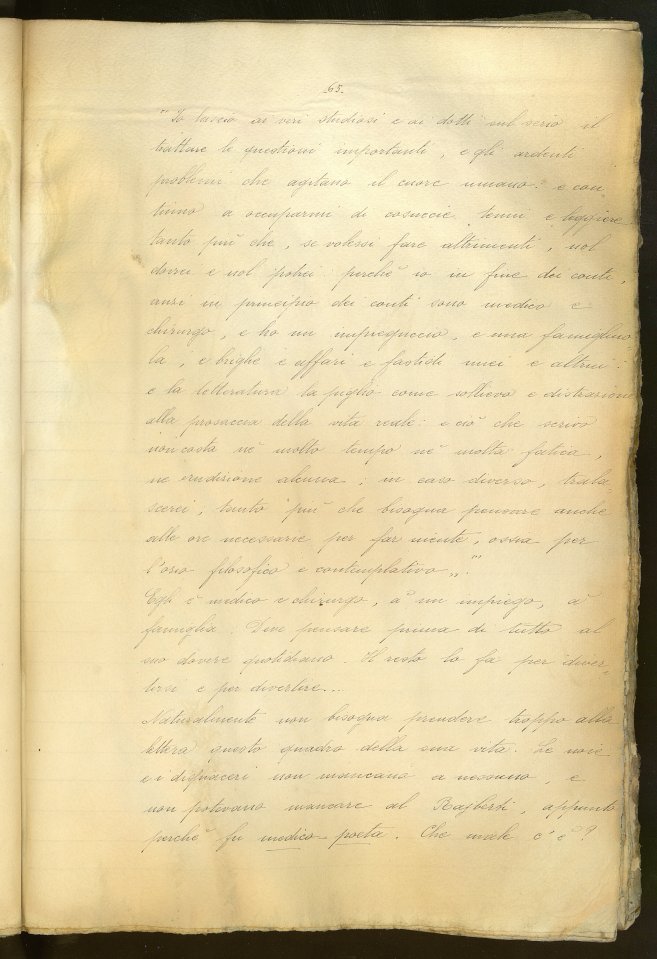 65.
"Io lascio ai veri studiosi e ai dotti sul serio il
trattare le questioni importanti, e gli ardenti
problemi che agitano il cuore umano: e con
tinuo a occuparmi di cosuccie tenui e leggiere
tanto più che, se volessi fare altrimenti, nol
dovrei e nol potrei: perché io in fine dei conti,
anzi in principio dei conti sono medico e
chirurgo, e ho un impieguccio, e una famigliuo
la, e brighe e affari e fastidi miei e altrui:
e la letteratura la piglio come sollievo e distrazione
alla prosaccia della vita reale: e ciò che scrivo
non costa nè molto tempo nè molta fatica,
ne erudizione alcuna; in caso diverso, trala-
scerei; tanto più che bisogna pensare anche
alle ore necessarie per far niente, ossia per
l'ozio filosofico e contemplativo„.
Egli è medico e chirurgo, à un impiego, à
famiglia. Deve pensare prima di tutto al
suo dovere quotidiano. Il resto lo fa per diver-
tirsi e per divertire...
Naturalmente non bisogna prendere troppo alla
lettera questo quadro della sua vita. Le noie
e i dispiaceri non mancano a nessuno, e
non potevano mancare al Rajberti, appunto
perchè fu medico-poeta. Che male c'è?